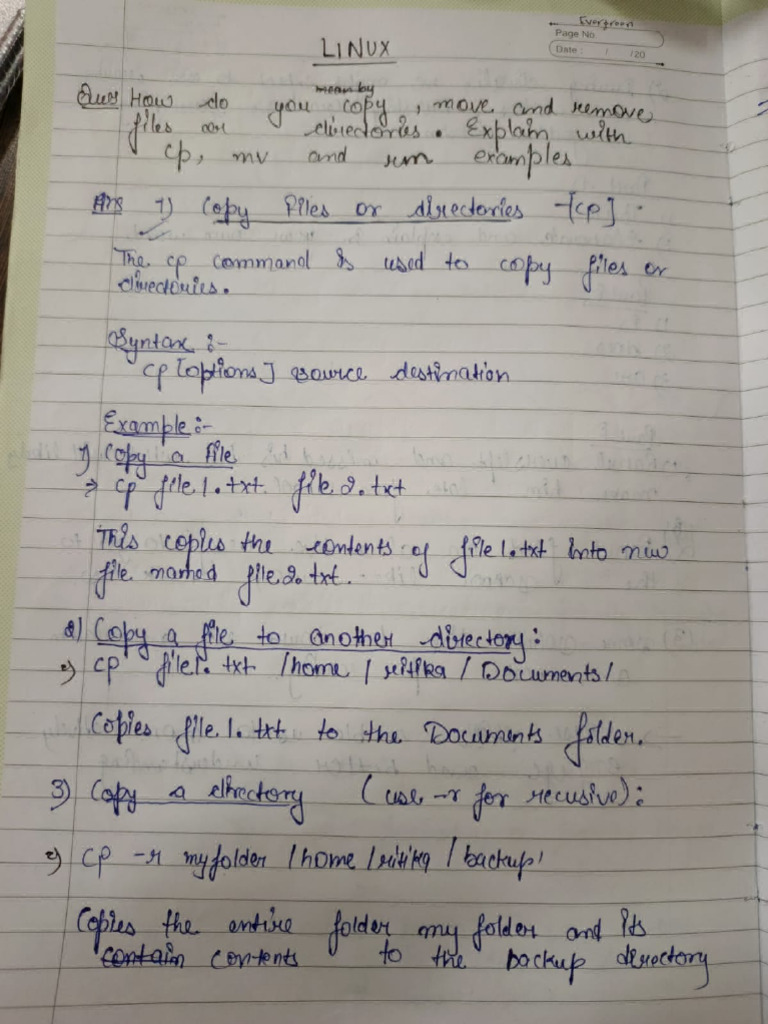 Evergreen
Page No.
Date : / /20
LINUX
Ques How do you mean by copy, move and remove
files or directories. Explain with
cp, mv and rm examples
Ans 1) Copy Files or directories -[cp].
The cp command is used to copy files or
directories.
Syntax :-
cp [options] source destination
Example :-
1) Copy a file
⇒ cp file1.txt file2.txt
This copies the contents of file1.txt into new
file named file2.txt.
2) Copy a file to another directory:
cp file1.txt /home/ritika/Documents/
Copies file1.txt to the Documents folder.
3) Copy a directory (use -r for recusive):
cp -r myfolder /home/ritika/backup/
Copies the entire folder my folder and its
contain contents to the backup directory